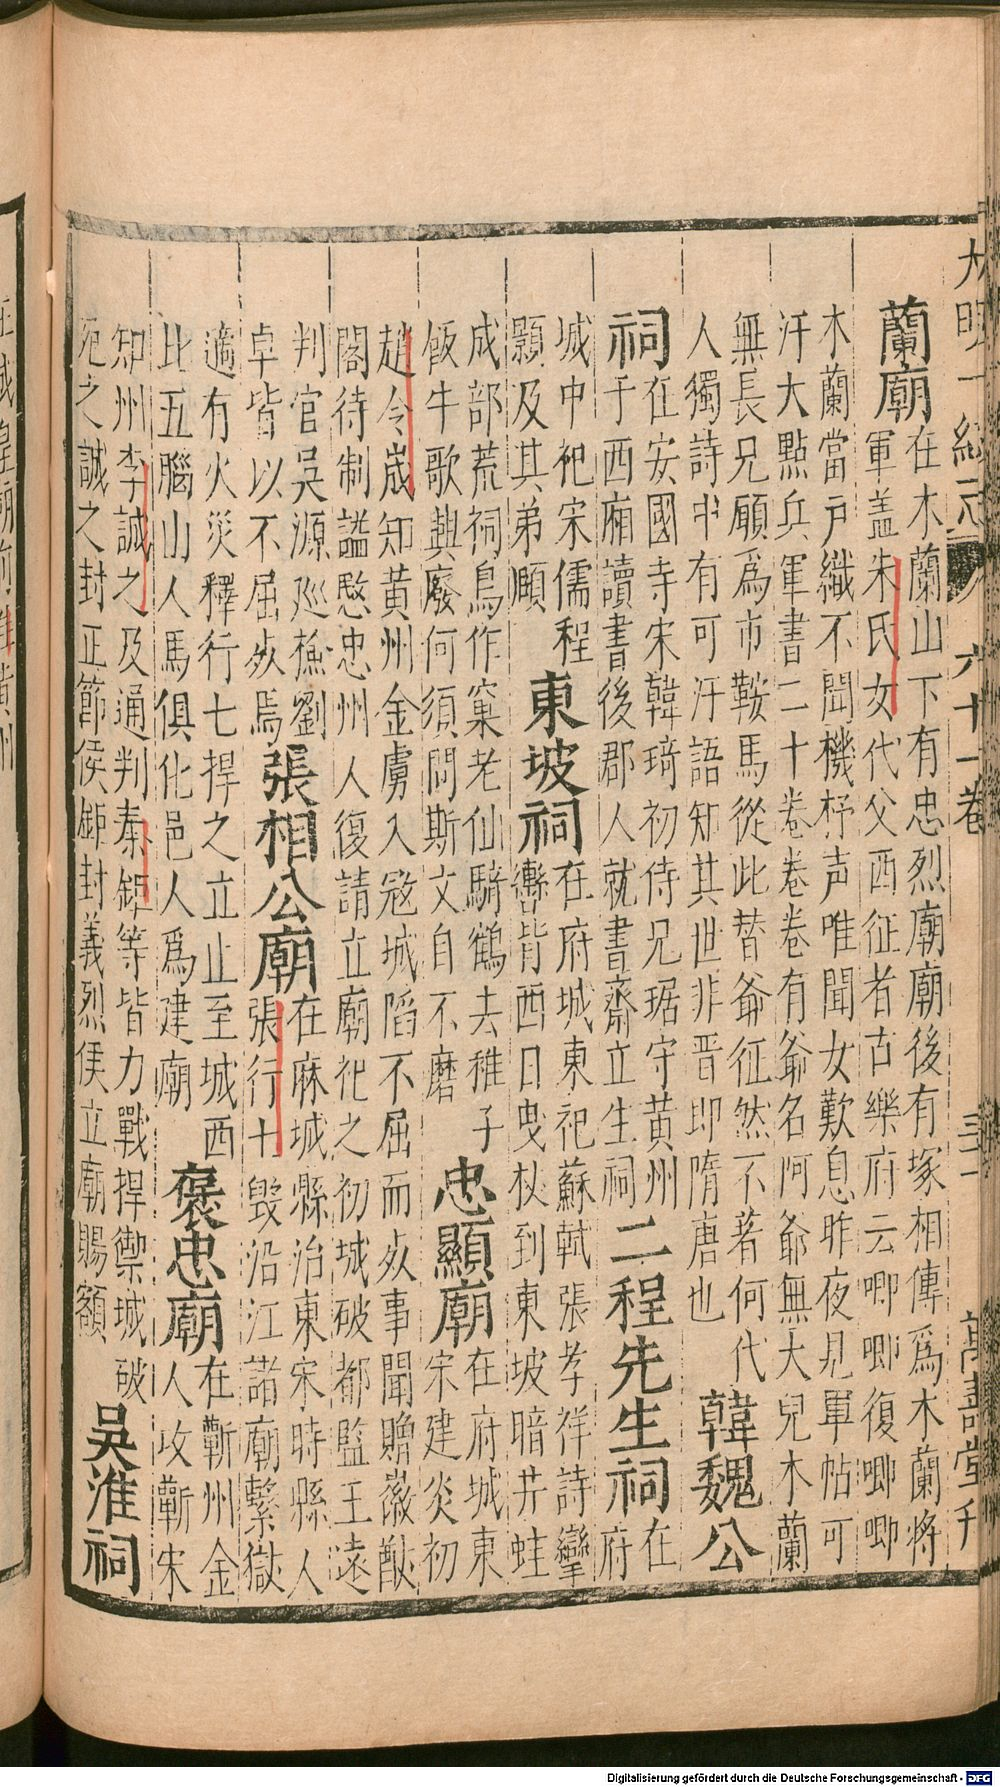 大明一統志 六十一卷 萬壽堂刊
蘭廟
在木蘭山下有忠烈廟廟後有塚相傳爲木蘭將
軍蓋朱氏女代父西征者古樂府云唧唧復唧唧
木蘭當戶織不聞機杼声唯聞女歎息昨夜見軍帖可
汗大點兵軍書二十卷卷卷有爺名阿爺無大兒木蘭
無長兄願爲市鞍馬從此替爺征然不著何代
人獨詩中有可汗語知其世非晉即隋唐也
韓魏公
祠
在安國寺宋韓琦初侍兄琚守黄州
于西廂讀書後郡人就書齋立生祠
二程先生祠
在
府
城中祀宋儒程
顥及其弟頤
東坡祠
在府城東祀蘇軾張孝祥詩攣
轡背西日曳杖到東坡暗井蛙
成部荒祠鳥作窠老仙騎鶴去稚子
飯牛歌興廢何須問斯文自不磨
忠顯廟
在府城東
宋建炎初
趙令峸知黄州金虜入冦城䧟不屈而死事聞贈徽猷
閣待制謚愍忠州人復請立廟祀之初城破都監王遠
判官吳源廵檢劉
卓皆以不屈死焉
張相公廟
在麻城縣治東宋時縣人
張行十毁沿江諸廟繫獄
適有火災釋行七捍之立止至城西
比五腦山人馬俱化邑人爲建廟
褒忠廟
在蘄州金
人攻蘄宋
知州李誠之及通判秦鉅等皆力戰捍禦城破
死之誠之封正節侯鉅封義烈侯立廟賜額
吳淮祠
Digitalisierung gefördert durch die Deutsche Forschungsgemeinschaft - DFG